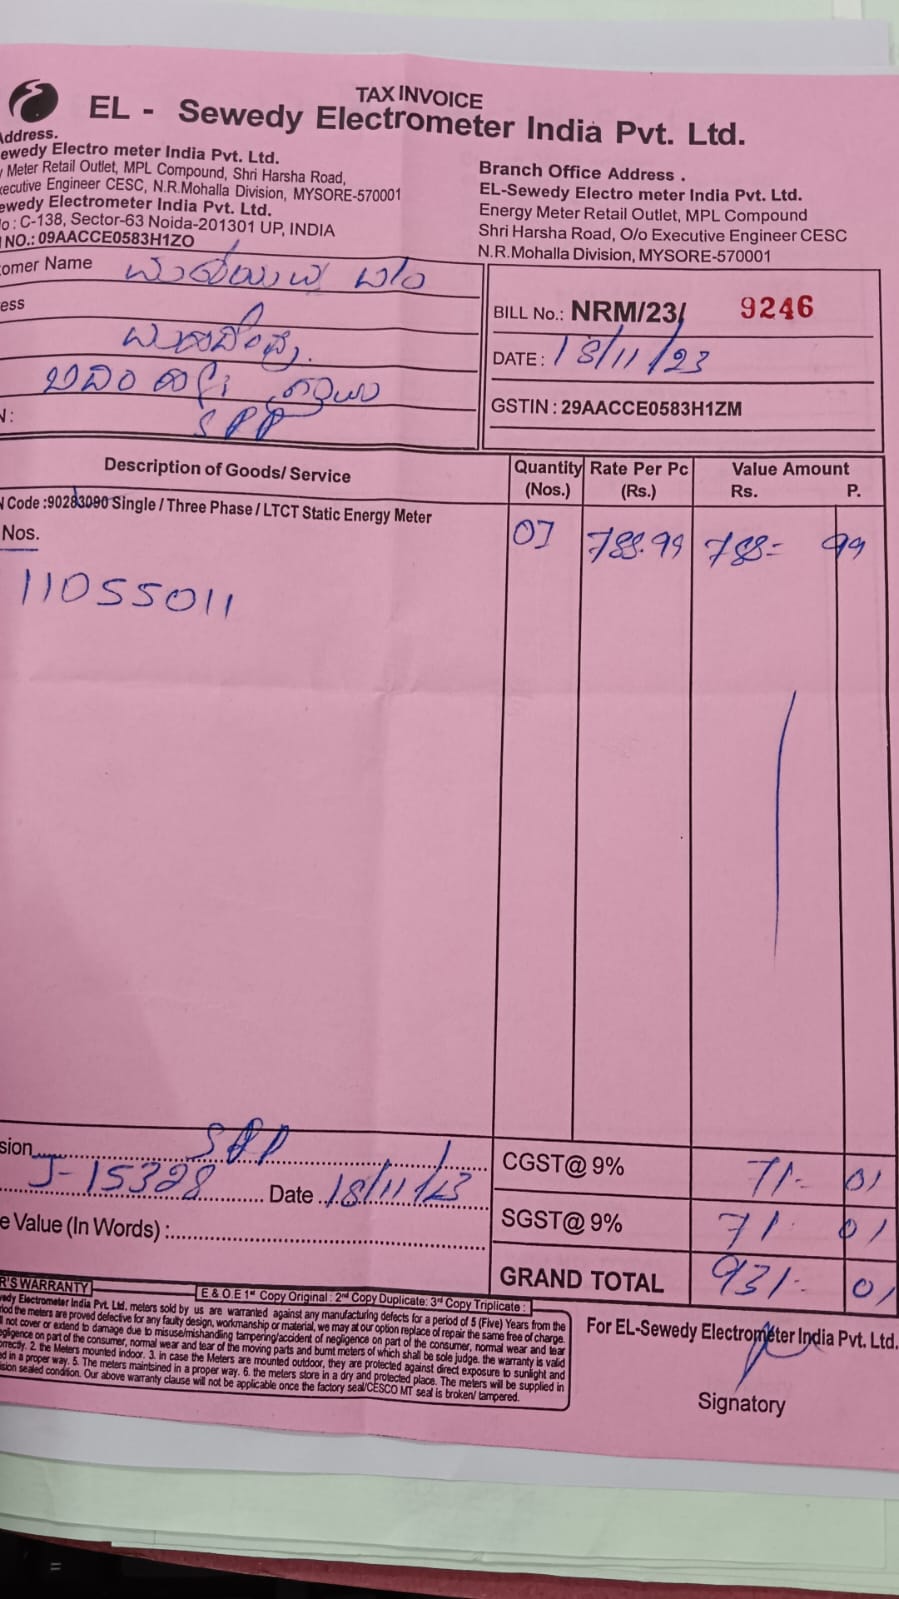 TAX INVOICE
EL - Sewedy Electrometer India Pvt. Ltd.
Address.
ewedy Electro meter India Pvt. Ltd.
Meter Retail Outlet, MPL Compound, Shri Harsha Road,
xecutive Engineer CESC, N.R.Mohalla Division, MYSORE-570001
ewedy Electrometer India Pvt. Ltd.
o : C-138, Sector-63 Noida-201301 UP, INDIA
NO.: 09AACCE0583H1ZO
Branch Office Address .
EL-Sewedy Electro meter India Pvt. Ltd.
Energy Meter Retail Outlet, MPL Compound
Shri Harsha Road, O/o Executive Engineer CESC
N.R.Mohalla Division, MYSORE-570001
omer Name
ess
SPP
N :
BILL No.: NRM/23/ 9246
DATE : 18/11/23
GSTIN : 29AACCE0583H1ZM
Description of Goods/ Service Quantity (Nos.) Rate Per Pc (Rs.) Value Amount Rs. P.
Code :90283090 Single / Three Phase / LTCT Static Energy Meter
Nos.
01 788.99 788= 99
11055011
sion SPP
J-15328 Date 18/11/23
e Value (In Words) :
CGST@ 9% 71- 01
SGST@ 9% 71- 01
GRAND TOTAL 931- 01
R'S WARRANTY
E & O.E 1st Copy Original : 2nd Copy Duplicate: 3rd Copy Triplicate :
wedy Electrometer India Pvt. Ltd. meters sold by us are warranted against any manufacturing defects for a period of 5 (Five) Years from the
iod the meters are proved defective for any faulty design, workmanship or material, we may at our option replace of repair the same free of charge.
ll not cover or extend to damage due to misuse/mishandling tampering/accident of negligence on part of the consumer, normal wear and tear
egligence on part of the consumer, normal wear and tear of the moving parts and burnt meters of which shall be sole judge. the warranty is valid
orrectly. 2. the Meters mounted indoor. 3. in case the Meters are mounted outdoor, they are protected against direct exposure to sunlight and
ed in a proper way. 5. The meters maintsined in a proper way. 6. the meters store in a dry and protected place. The meters will be supplied in
ision sealed condition. Our above warranty clause will not be applicable once the factory seal/CESCO MT seal is broken/ tampered.
For EL-Sewedy Electrometer India Pvt. Ltd.
Signatory